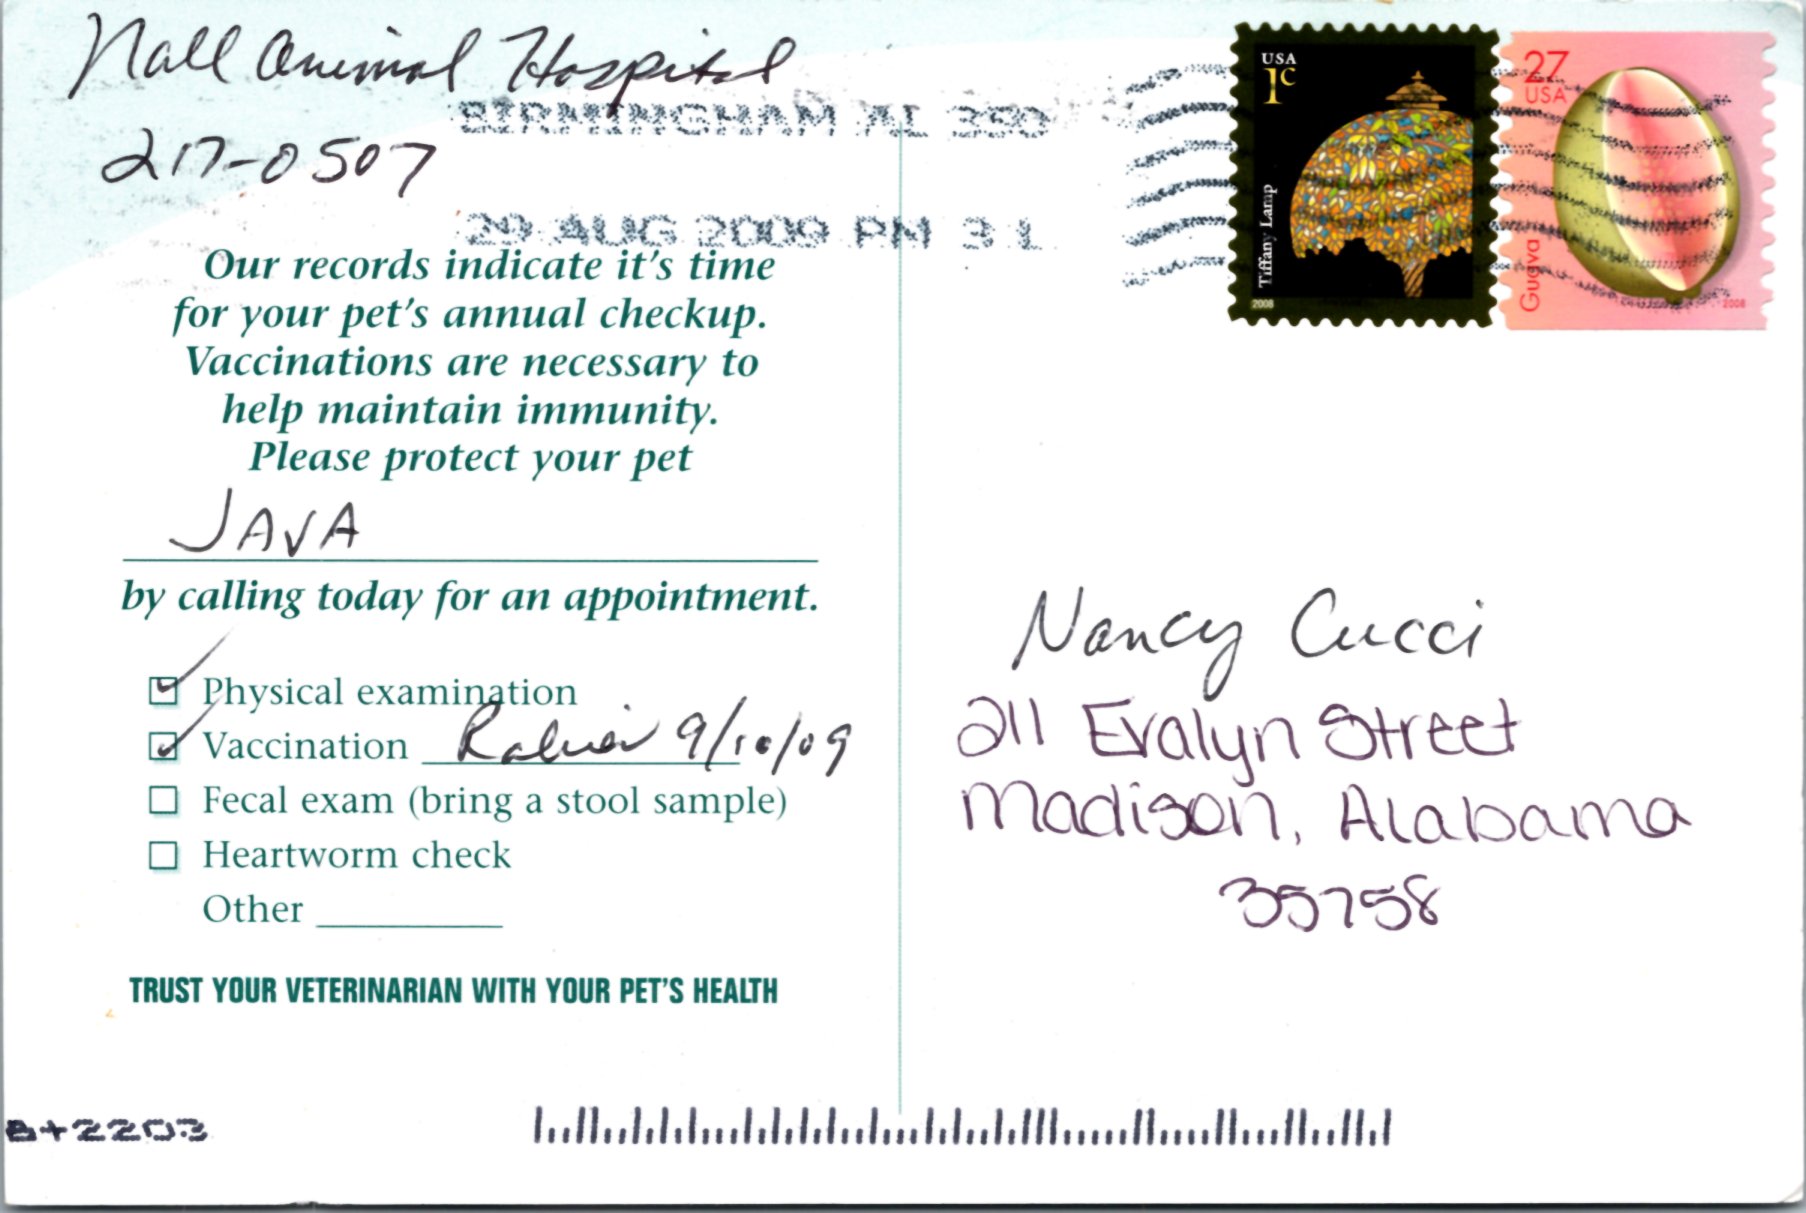 Nall Animal Hospital
217-0507
BIRMINGHAM AL 350
29 AUG 2009 PM 3 L
USA
1c
Tiffany Lamp
2008
27
USA
Guava
2008
Our records indicate it's time
for your pet's annual checkup.
Vaccinations are necessary to
help maintain immunity.
Please protect your pet
JAVA
by calling today for an appointment.
Physical examination
Vaccination Rabies 9/10/09
Fecal exam (bring a stool sample)
Heartworm check
Other
TRUST YOUR VETERINARIAN WITH YOUR PET'S HEALTH
Nancy Cucci
211 Evalyn Street
Madison, Alabama
35758
B+2203